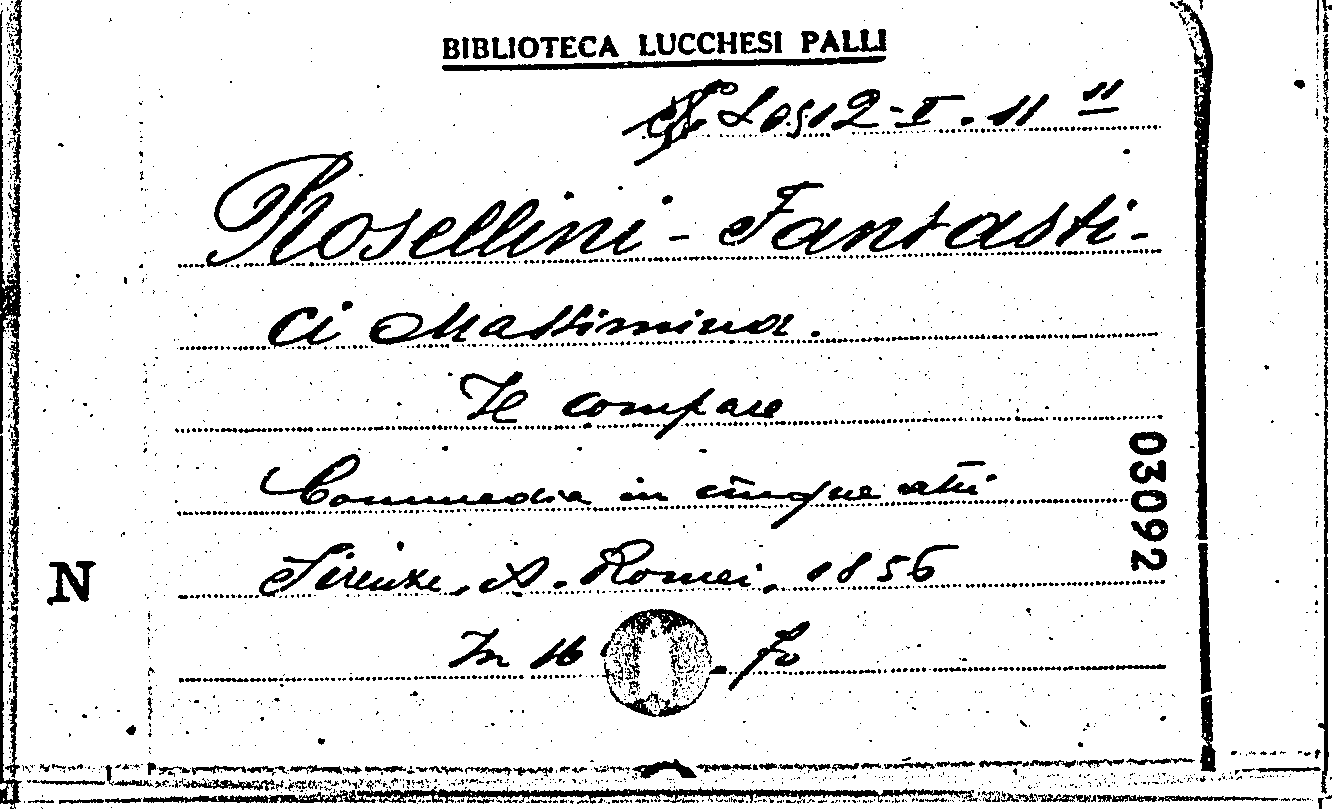 BIBLIOTECA LUCCHESI PALLI
12-II. 11 11
Rosellini - Fantasti-
ci Massimina.
Il compare
Commedia in cinque atti
Firenze, A. Romei, 1856
In 16 . 70
03092
N